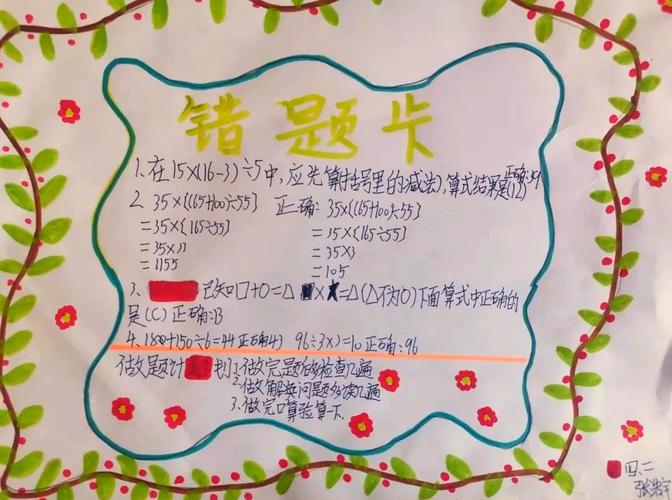 错题卡
1. 在15×(16-3)÷5中,应先算(括号里的减法),算式结果是(12) 正确:39
2. 35×[(65+100)÷55] 正确: 35×[(65+100)÷55]
=35×[165÷55] =35×[165÷55]
=35×33 =35×3
=1155 =105
3、已知□+○=△ ×=△(△不为0)下面算式中正确的
是(C) 正确:B
4. 180+150÷6=44 96÷3×3=10 正确:96
做题计划:1.做完题后检查几遍
2.做解决问题多读几遍
3.做完口算验算一下.
四、二